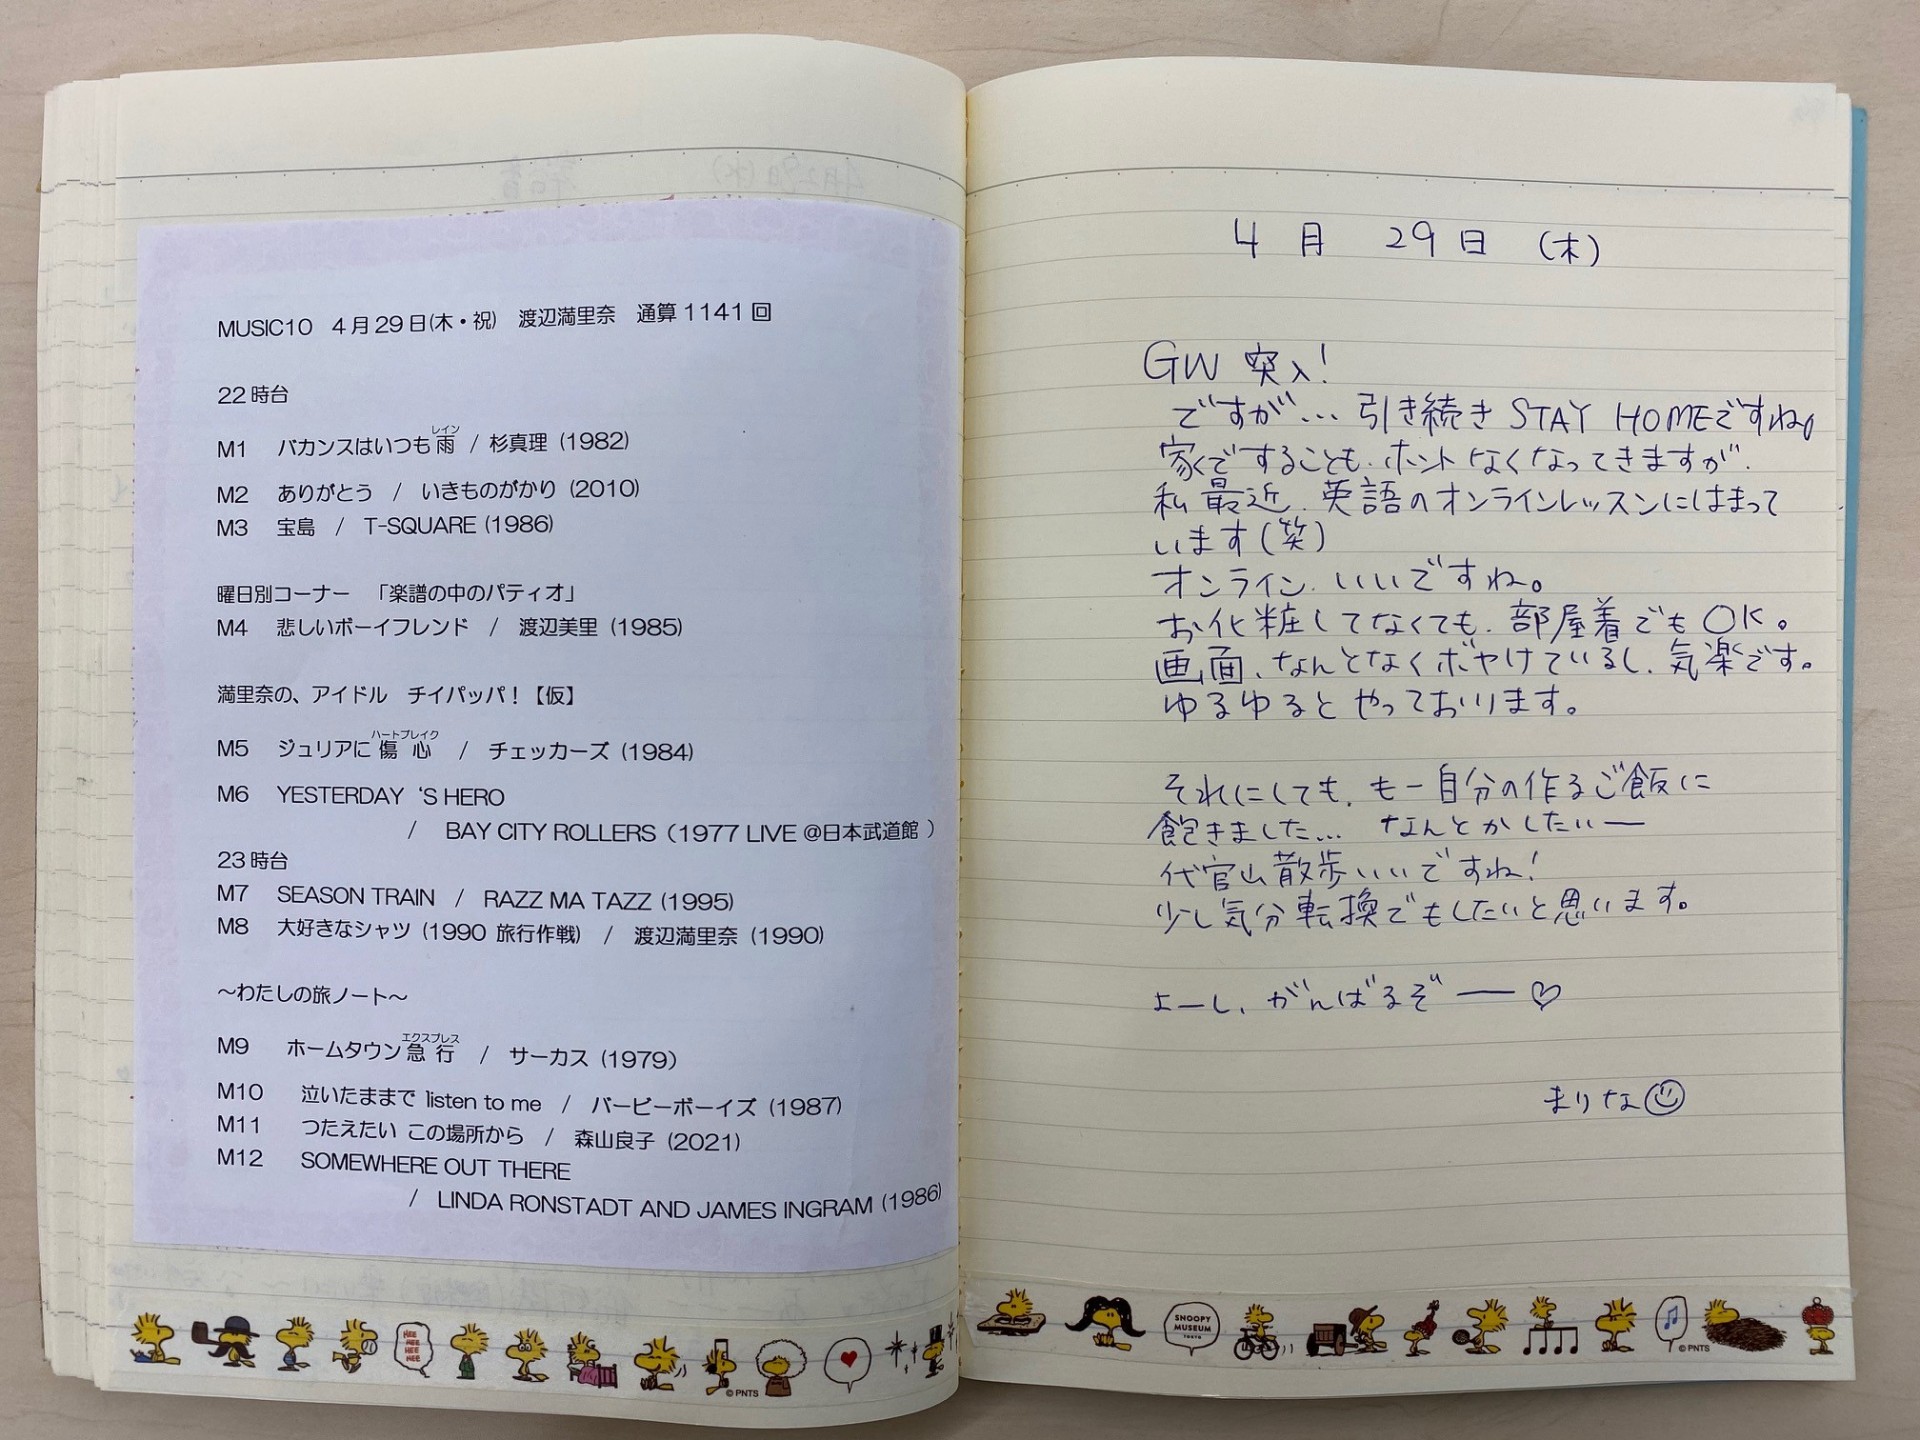 MUSIC10 4月29日(木・祝) 渡辺満里奈 通算1141回
22時台
M1 バカンスはいつも雨 / 杉真理 (1982)
レイン
M2 ありがとう / いきものがかり (2010)
M3 宝島 / T-SQUARE (1986)
曜日別コーナー 「楽譜の中のパティオ」
M4 悲しいボーイフレンド / 渡辺美里 (1985)
満里奈の、アイドル チイパッパ！【仮】
ハートブレイク
M5 ジュリアに傷心 / チェッカーズ (1984)
M6 YESTERDAY 'S HERO
/ BAY CITY ROLLERS (1977 LIVE @日本武道館 )
23時台
M7 SEASON TRAIN / RAZZ MA TAZZ (1995)
M8 大好きなシャツ (1990 旅行作戦) / 渡辺満里奈 (1990)
～わたしの旅ノート～
エクスプレス
M9 ホームタウン急行 / サーカス (1979)
M10 泣いたままで listen to me / バービーボーイズ (1987)
M11 つたえたい この場所から / 森山良子 (2021)
M12 SOMEWHERE OUT THERE
/ LINDA RONSTADT AND JAMES INGRAM (1986)
4月 29日 (木)
GW 突入!
ですが… 引き続き STAY HOMEですね。
家ですることも、ホントなくなってきますが、
私最近、英語のオンラインレッスンにはまって
います(笑)
オンライン、いいですね。
お化粧してなくても、部屋着でもOK。
画面、なんとなくボヤけているし、気楽です。
ゆるゆるとやっております。
それにしても、もー自分の作るご飯に
飽きました… なんとかしたいー
代官山散歩いいですね!
少し気分転換でもしたいと思います。
よーし、がんばるぞー♡
まりな☺
HEE
HEE
HEE
HEE
© PNTS
SNOOPY
MUSEUM
TOKYO
© PNTS